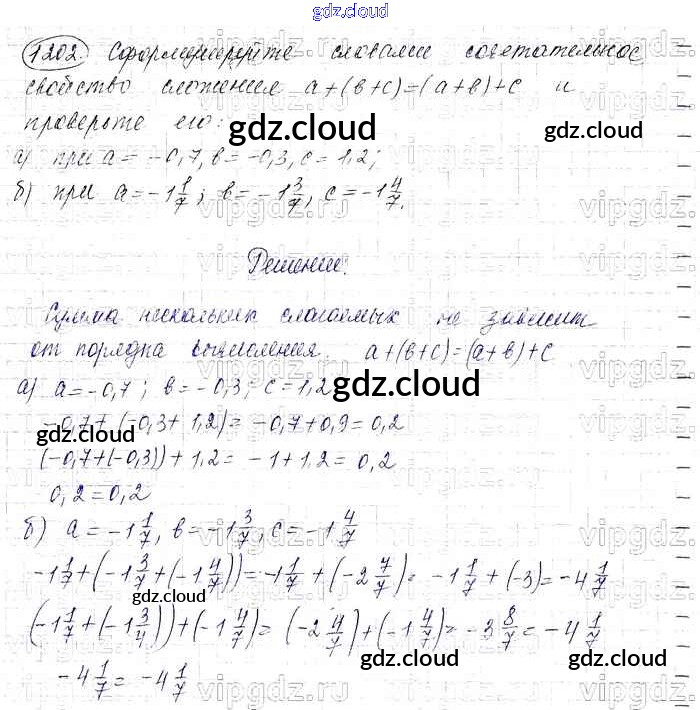 gdz.cloud
1202. Сформулируйте словами сочетательное
свойство сложения a+(b+c)=(a+b)+c и
проверьте его:
gdz.cloud
а) при a=-0,7, b=-0,3, c=1,2;
б) при a=-1 1/7; b=-1 3/7, c=-1 4/7.
Решение:
Сумма нескольких слагаемых не зависит
от порядка вычисления. a+(b+c)=(a+b)+c
а) a=-0,7; b=-0,3; c=1,2
gdz.cloud
-0,7+(-0,3+1,2)=-0,7+0,9=0,2
gdz.cloud
(-0,7+(-0,3))+1,2=-1+1,2=0,2
0,2=0,2
б) a=-1 1/7, b=-1 3/7, c=-1 4/7
-1 1/7+(-1 3/7+(-1 4/7))=-1 1/7+(-2 7/7)=-1 1/7+(-3)=-4 1/7
gdz.cloud
(-1 1/7+(-1 3/4))+(-1 4/7)=(-2 4/7)+(-1 4/7)=-3 8/7=-4 1/7
gdz.cloud
gdz.cloud
-4 1/7=-4 1/7
gdz.cloud
vipgdz.ru